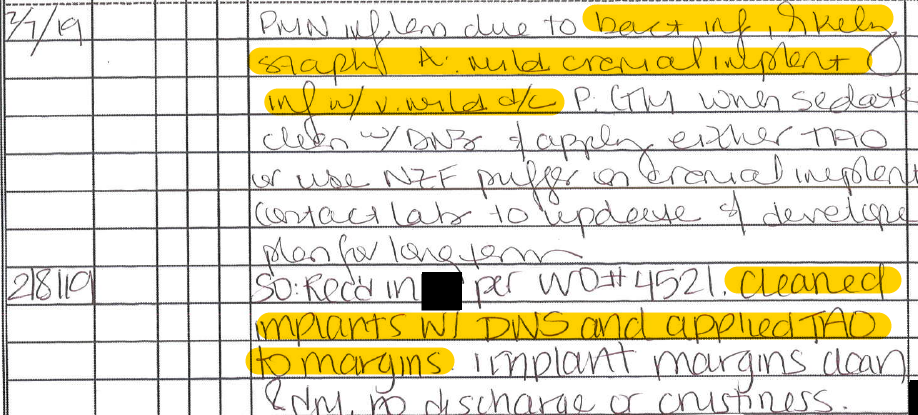 2/7/19 PMN inflam due to bact inf, likely
staph) A: mild cranial implant
inf w/ v. mild d/c P: CTM when sedate
clean w/ DNS & apply either TAO
or use NZF puffer on cranial implant
contact lab to update & develope
plan for long term
2/8/19 SO: Rec'd in per WO# 4521. Cleaned
implants w/ DNS and applied TAO
to margins. implant margins clean
& dry, no discharge or crustiness.